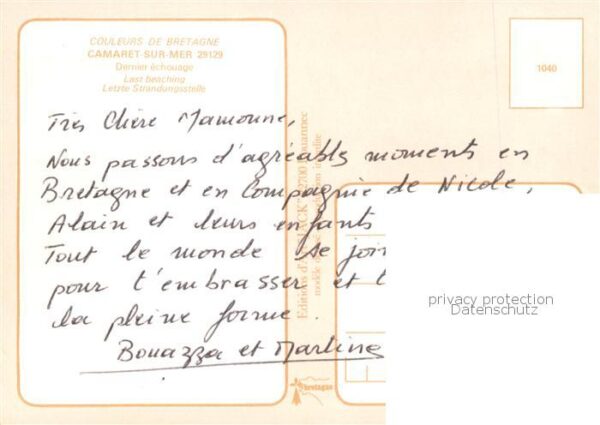 COULEURS DE BRETAGNE
CAMARET-SUR-MER 29129
Dernier échouage
Last beaching
Letzte Strandungsstelle
1040
Très Chère Mamoune,
Nous passons d'agréables moments en
Bretagne et en Compagnie de Nicole,
Alain et leurs enfants
Tout le monde se join
pour t'embrasser et t
la pleine forme.
Bouazza et Martine
Editions d'
JACK
modèle
interdite
bretagne
privacy protection
Datenschutz